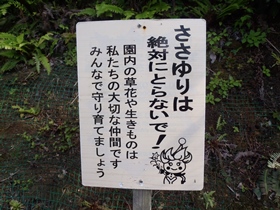 ささゆりは
絶対にとらないで！
園内の草花や生きものは
私たちの大切な仲間です
みんなで守り育てましょう